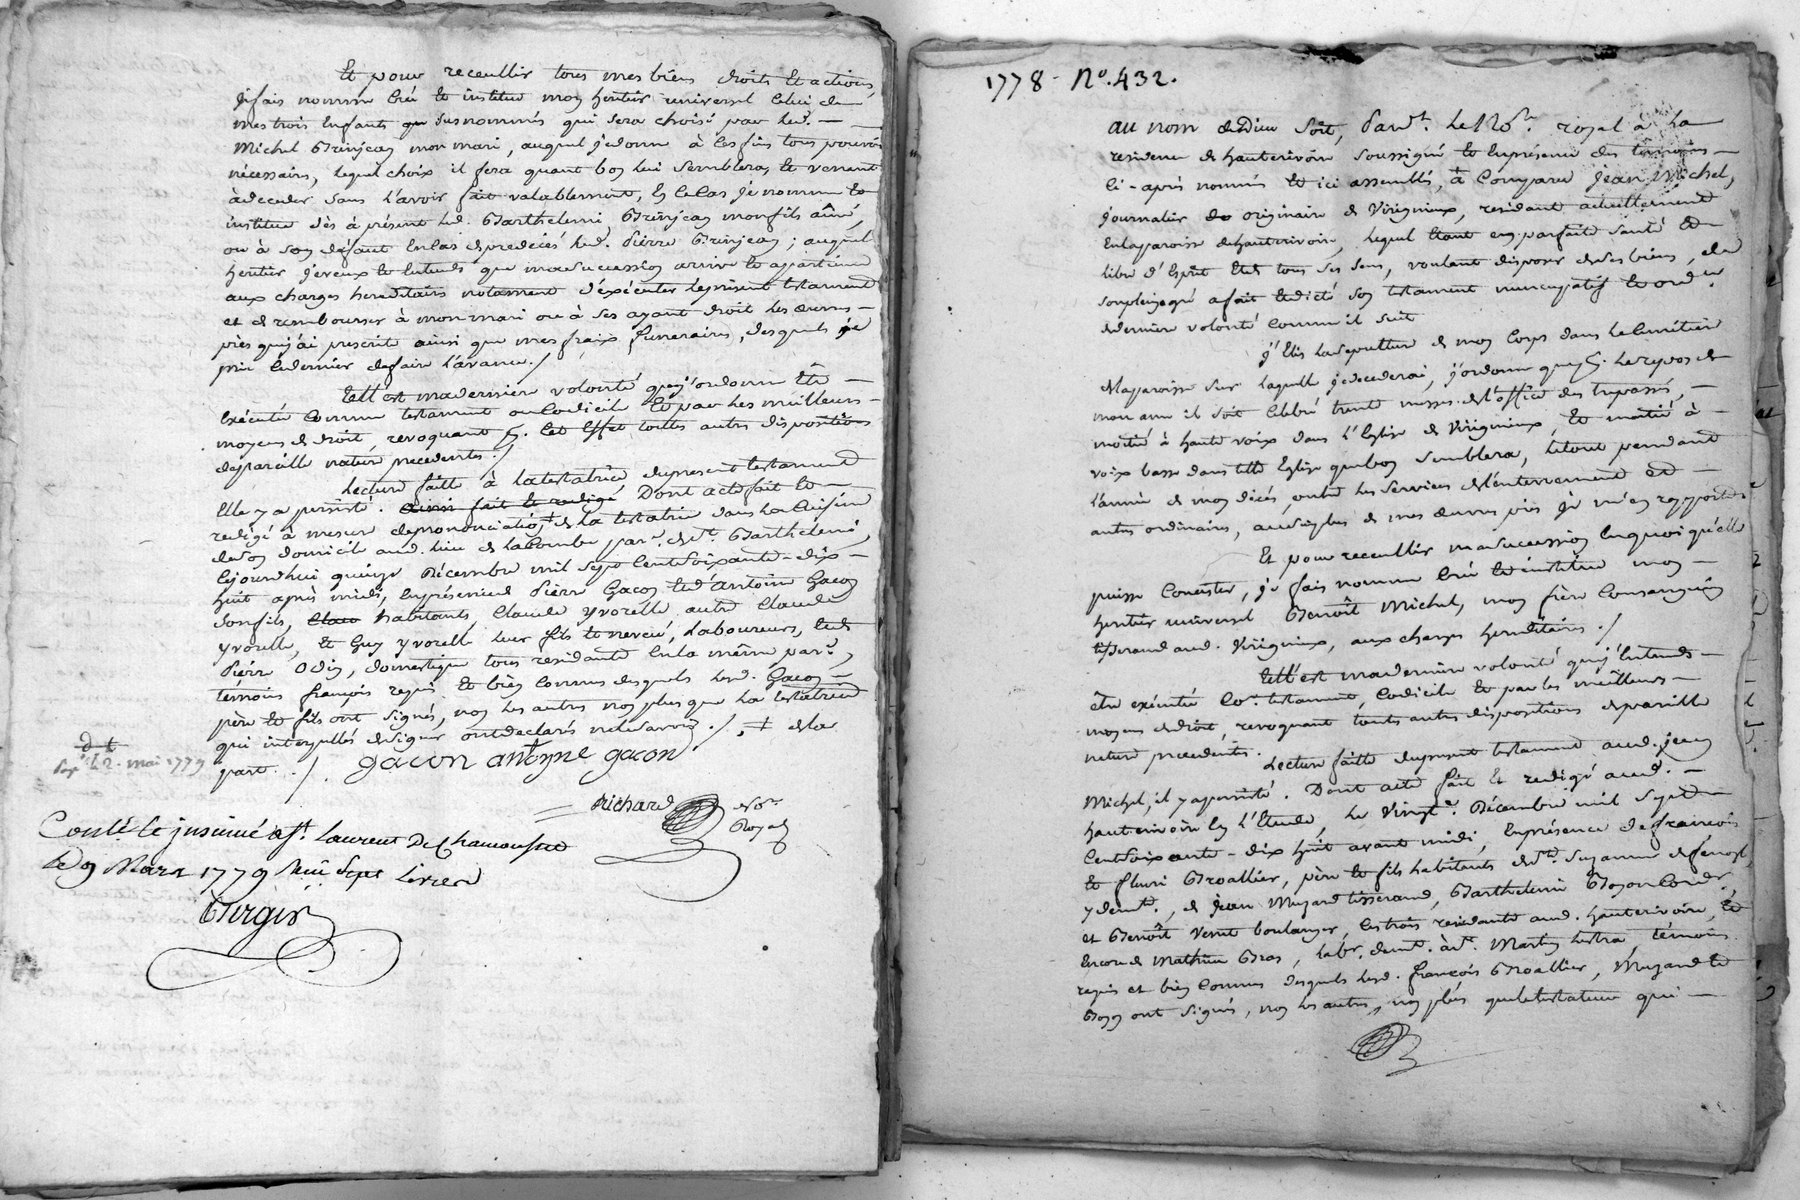 Et pour receuillir tous mes biens droits et actions,
je fais nomme créé et institue mon heritier universel celui de
mes trois enfants susnommés qui sera choisi par led. —
Michel Grinjeon mon mari, auquel je donne à ces fins tous pouvoirs
nécessaires, lequel choix il fera quant bon lui semblera, et venant
à deceder sans l'avoir fait valablement, en ce cas je nomme et
institue dès à présent led. Barthelemi Grinjeon mon fils aîné,
ou à son défaut en cas de predecés led. Pierre Grinjeon; auquel
heritier je veux et entends que ma succession arrive et apartienne
aux charges hereditaires notament d'exécuter le present testament
et de rembourser à mon mari ou à ses ayant droit les œuvres —
pies que j'ai prescrite ainsi que mes fraix funeraires, desquels je
prie ce dernier de faire l'avance ./
Telle est ma derniere volonté que j'ordonne être —
exécuté comme testament ou codicile et par les meilleurs —
moyens de droit, revoquant p. cet effet toutes autres dispositions
de pareille nature precedentes ./
Lecture faitte à la testatrice du present testament
Elle y a persisté. ainsi fait et redigé Dont acte fait et —
redigé à mesure de prononciation de la testatrice dans la cuisine
de son domicile aud. lieu de la Combe par. de st. Barthelemi,
cejourd'hui quinze Décembre mil sept cent soixante-dix-
huit après midi, en présence de Pierre Gacon et d'Antoine Gacon
son fils, habitants, Claude yvorelle autre Claude
yvorelle, et Guy yvorelle leur fils et neveu, Laboureurs, et de
Pierre Odin, domestique tous residants en la même par.,
témoins françois requis et bien connus desquels lesd. Gacon —
père et fils ont signés, non les autres non plus que la testatrice
qui interpellés de signer ont declarés ne le savoir ./ ‡ de la
part ./. gacon antoyne gacon
Exp. le 2. mai 1779
richard No.re
Royal
Conté et insinué à St. Laurent De Chamousset
Le 9 Mars 1779 Reçu Sept Livres
Bergier
1778 - No. 432.
au nom de Dieu soit, Pardt. le No.re royal à la
residence de hauterivoire soussigné et en présence des temoins —
ci-après nommés et ici assemblés, à comparu Jean Michel,
journalier originaire de Virigneux, residant actuellement
en la paroisse de hauterivoire, lequel étant en parfaite santé et
libre d'Esprit et de tous ses sens, voulant disposer de ses biens, de
son plein gré a fait et dicté son testament nuncupatif et ord.re
de derniere volonté comme il suit
j'Elis la sepulture de mon corps dans le cimetiere
de la paroisse sur laquelle je decederai, j'ordonne que p. le repos de
mon ame il soit célébré trente messes de l'office des trepassés, —
moitié à haute voix dans l'Eglise de Virigneux, et moitié à —
voix basse dans telle Eglise que bon semblera, le tout pendant
l'année de mon décès, outre les services de l'enterrement et —
autres ordinaires, au surplus de mes œuvres pies je m'en rapporte
Et pour receuillir ma succession en quoi qu'elle
puisse consister, je fais nomme créé et institue mon —
heritier universel Benoît Michel, mon frère consanguin
tisserand aud. Virigneux, aux charges hereditaires ./
Tell'est ma derniere volonté que j'entends —
être exécuté co.e testament, codicile et par les meilleurs —
moyens de droit, revoquant toutes autres dispositions de pareille
nature precedentes. Lecture faitte du present testament aud. jean
Michel, il y a persisté. Dont acte fait et redigé aud. —
hauterivoire en l'Etude, le Vingt. Décembre mil sept
cent soixante-dix huit avant midi, en présence de francois
et fleuri Groallier, père et fils habitants de ste. Suzanne
y demt., de Jean Muzard tisserand, Barthelemi Boyon
et Benoît Venet boulanger, les trois residants aud. hauterivoire, et
encore de Mathieu Gras, labr. demt. à st. Martin Lestra, témoins
requis et bien connus desquels lesd. françois Groallier, Muzard et
Boyon ont signés, non les autres, non plus que le testateur qui —